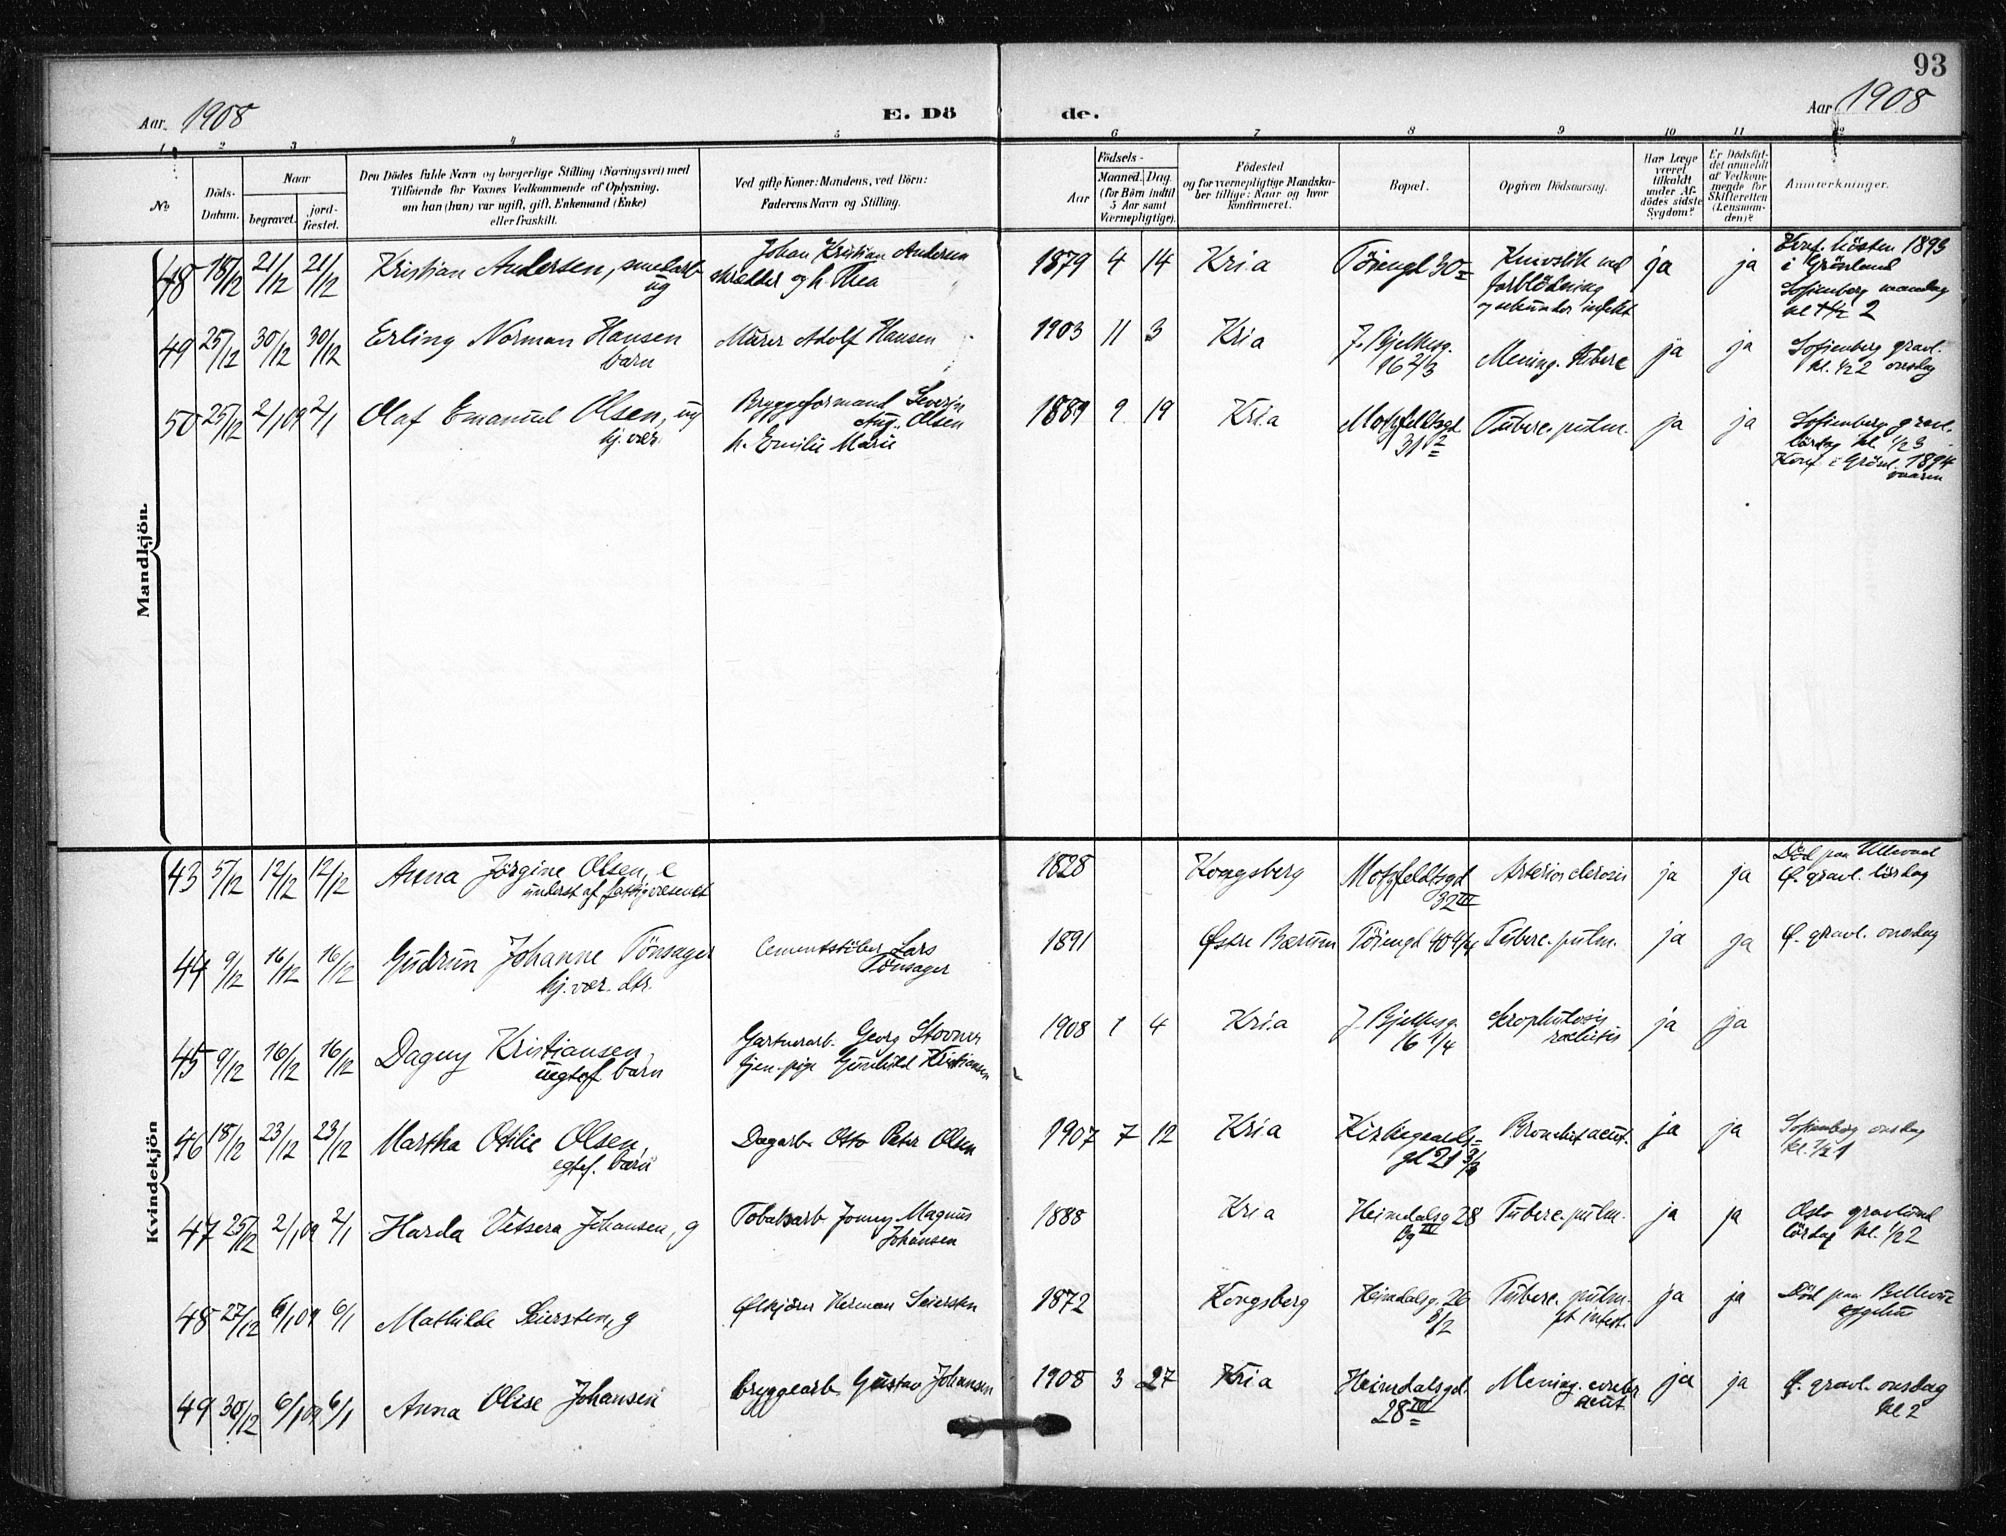 93
Aar 1908 E. Dö de. Aar 1908
1 2 3 4 5 6 7 8 9 10 11 12
No
Döds-Datum.
Naar
begravet.
jord-fæstet.
Den Dödes fulde Navn og borgerlige Stilling (Næringsvei) med
Tilföiende for Voxnes Vedkommende af Oplysning,
om han (hun) var ugift, gift, Enkemand (Enke)
eller fraskilt.
Ved gifte Koner: Mandens, ved Börn:
Faderens Navn og Stilling.
Födsels-
Aar
Maaned. Dag.
(for Börn indtil
5 Aar samt
Værnepligtige).
Födested
og for værnepligtige Mandska-
ber tillige: Naar og hvor
konfirmeret.
Bopæl.
Opgiven Dödsaarsag.
Har Læge
været
tilkaldt
under Af-
dödes sidste
Sygdom?
Er Dödsfal-
det anmeldt
af Vedkom-
mende for
Skifteretten
(Lensman-
den)?
Anmærkninger.
Mandkjön.
48 18/12 21/12 21/12 Kristian Andersen, smedarb ug
Johan Kristian Andersen
skrædder og h. Thea
1879 4 14 Kria Töiengd 30 II
Knivstik med
forblödning
og sekundær infekt
ja ja
Konf. hösten 1893
i Grönland
Sofienberg mandag
kl 1/2 2
49 25/12 30/12 30/12 Erling Norman Hansen
barn
Murer Adolf Hansen
1903 11 3 Kria J. Bjelkesg.
16 2/3
Mening. tuberc ja ja
Sofienberg gravl.
kl. 1/2 2 onsdag
50 25/12 2/1 09 2/1 Olaf Emanuel Olsen, ug
hj. vær.
Bryggeformand Severin
Aug. Olsen
h. Emilie Marie
1889 9 19 Kria Motzfeldtsgd
31 2
Tuberc. pulm. ja ja
Sofienberg gravl.
lördag kl. 1/2 3
Konf. i Grönl. 1894
vaaren
Kvindekjön
43 5/12 12/12 12/12 Anna Jörgine Olsen, e
underst af fattigvæsenet
1828 Kongsberg Motzfeldtsgd
32 III
Arteriosclerosis ja ja
Död paa Ullevaal
Ø. gravl. lördag
44 9/12 16/12 16/12 Gudrun Johanne Tönsager
hj. vær. dtr.
Cementstöber Lars
Tönsager
1891 Østre Bærum Töiengd 40 4/4 Tuberc. pulm. ja ja Ø. gravl. onsdag
45 9/12 16/12 16/12 Dagny Kristiansen,
uegtef barn
Gartnerarb. Georg Stovner
tjen. pige Gunhild Kristiansen
1908 1 4 Kria J. Bjelkesg.
16 1/4
Skrophulosis
rachitis
ja ja
46 18/12 23/12 23/12 Martha Otilie Olsen,
egtef. barn
Dagarb Otto Peter Olsen
1907 7 12 Kria Kirkegaards-
gd 21 3/3
Bronchit acut. ja ja
Sofienberg onsdag
kl. 1/2 1
47 25/12 2/1 09 2/1 Harda Vetsera Johansen, g
Tobaksarb Jonny Magnus
Johansen
1888 Kria Heimdalsg 28
bg III
Tuberc. pulm. ja ja
Oslo gravlund
lördag kl. 1/2 2
48 27/12 6/1 09 6/1 Mathilde Seiersten, g
Ølkjörer Herman Seiersten
1872 Kongsberg Heimdalsg. 26
b/2
Tuberc. pulm.
et intest.
ja ja
Död paa Bellevue
sygehus
49 30/12 6/1 09 6/1 Anna Olise Johansen
bryggearb Gustav Johansen
1908 3 27 Kria Heimdalsgd.
28 IV
Mening. cerebr
acut.
ja ja
Ø. gravl. onsdag
kl 2